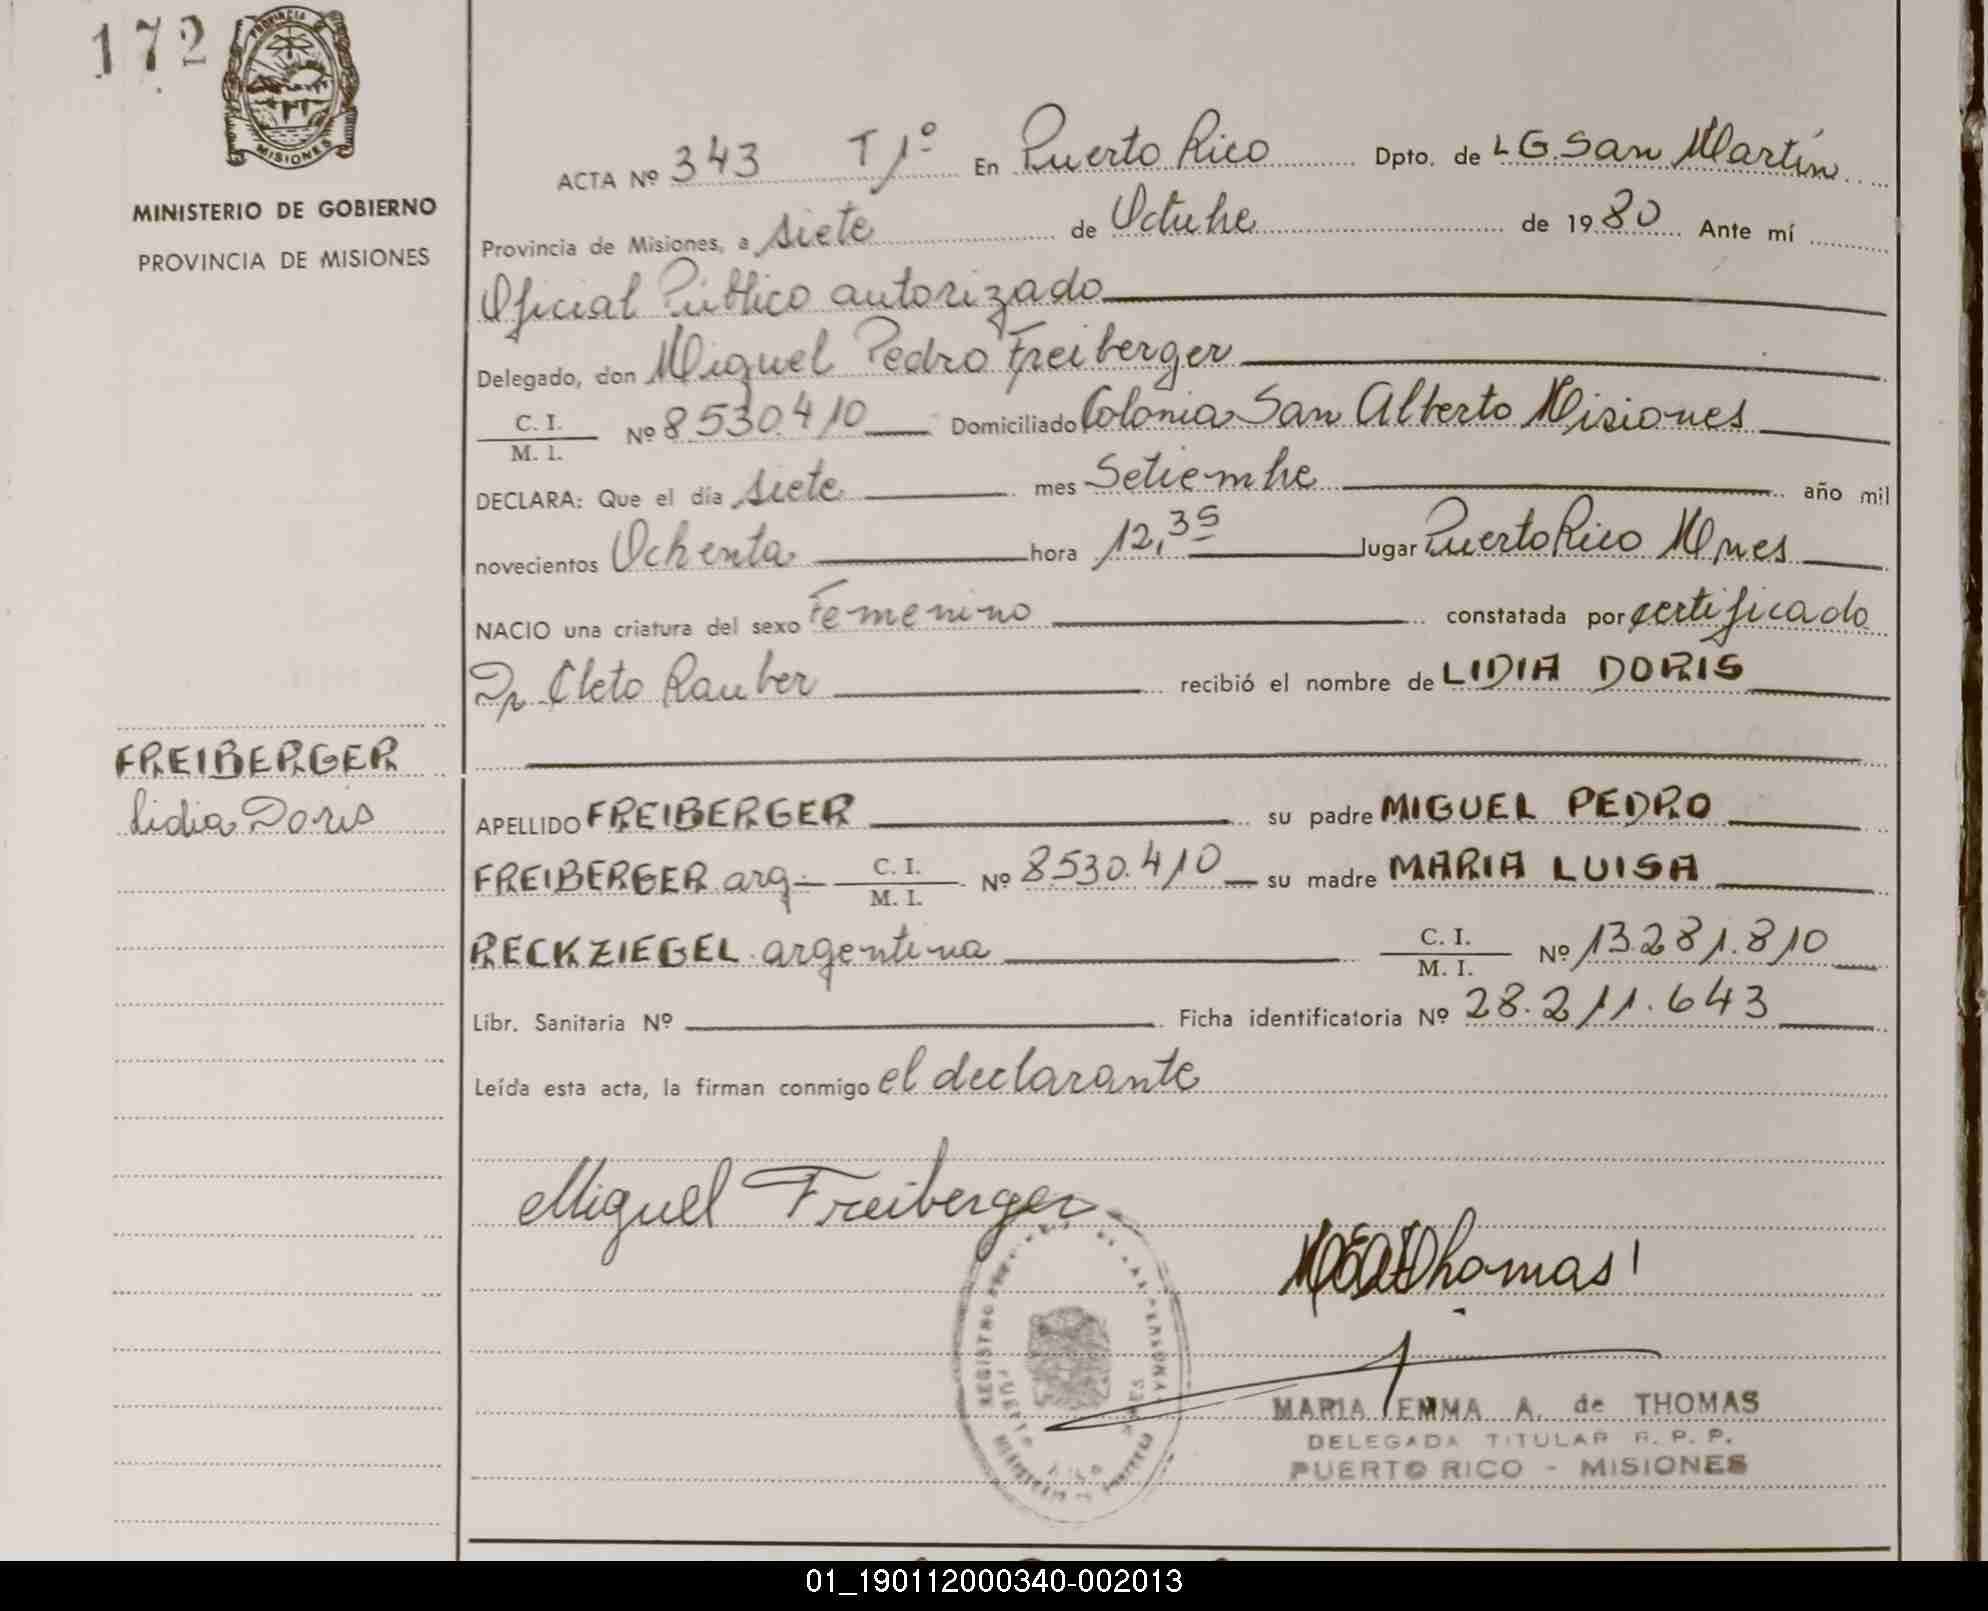 172
PROVINCIA
MISIONES
MINISTERIO DE GOBIERNO
PROVINCIA DE MISIONES
ACTA Nº 343 T1º En Puerto Rico Dpto. de L G. San Martín
Provincia de Misiones, a siete de Octubre de 1980 Ante mí
Oficial Público autorizado
Delegado, don Miguel Pedro Freiberger
C. I.
M. I.
Nº 8.530.410 Domiciliado Colonia San Alberto Misiones
DECLARA: Que el día siete mes Setiembre año mil
novecientos Ochenta hora 12,35 lugar Puerto Rico Mnes
NACIO una criatura del sexo Femenino constatada por certificado
Dr Cleto Rauber recibió el nombre de LIDIA DORIS
FREIBERGER
Lidia Doris
APELLIDO FREIBERGER su padre MIGUEL PEDRO
FREIBERGER arg- C. I. M. I. Nº 8.530.410 su madre MARIA LUISA
RECKZIEGEL argentina C. I. M. I. Nº 13.281.810
Libr. Sanitaria Nº Ficha identificatoria Nº 28.211.643
Leída esta acta, la firman conmigo el declarante
Miguel Freiberger
Thomas
REGISTRO
PUERTO
MARIA EMMA A. de THOMAS
DELEGADA TITULAR R. P. P.
PUERTO RICO - MISIONES
01_190112000340-002013